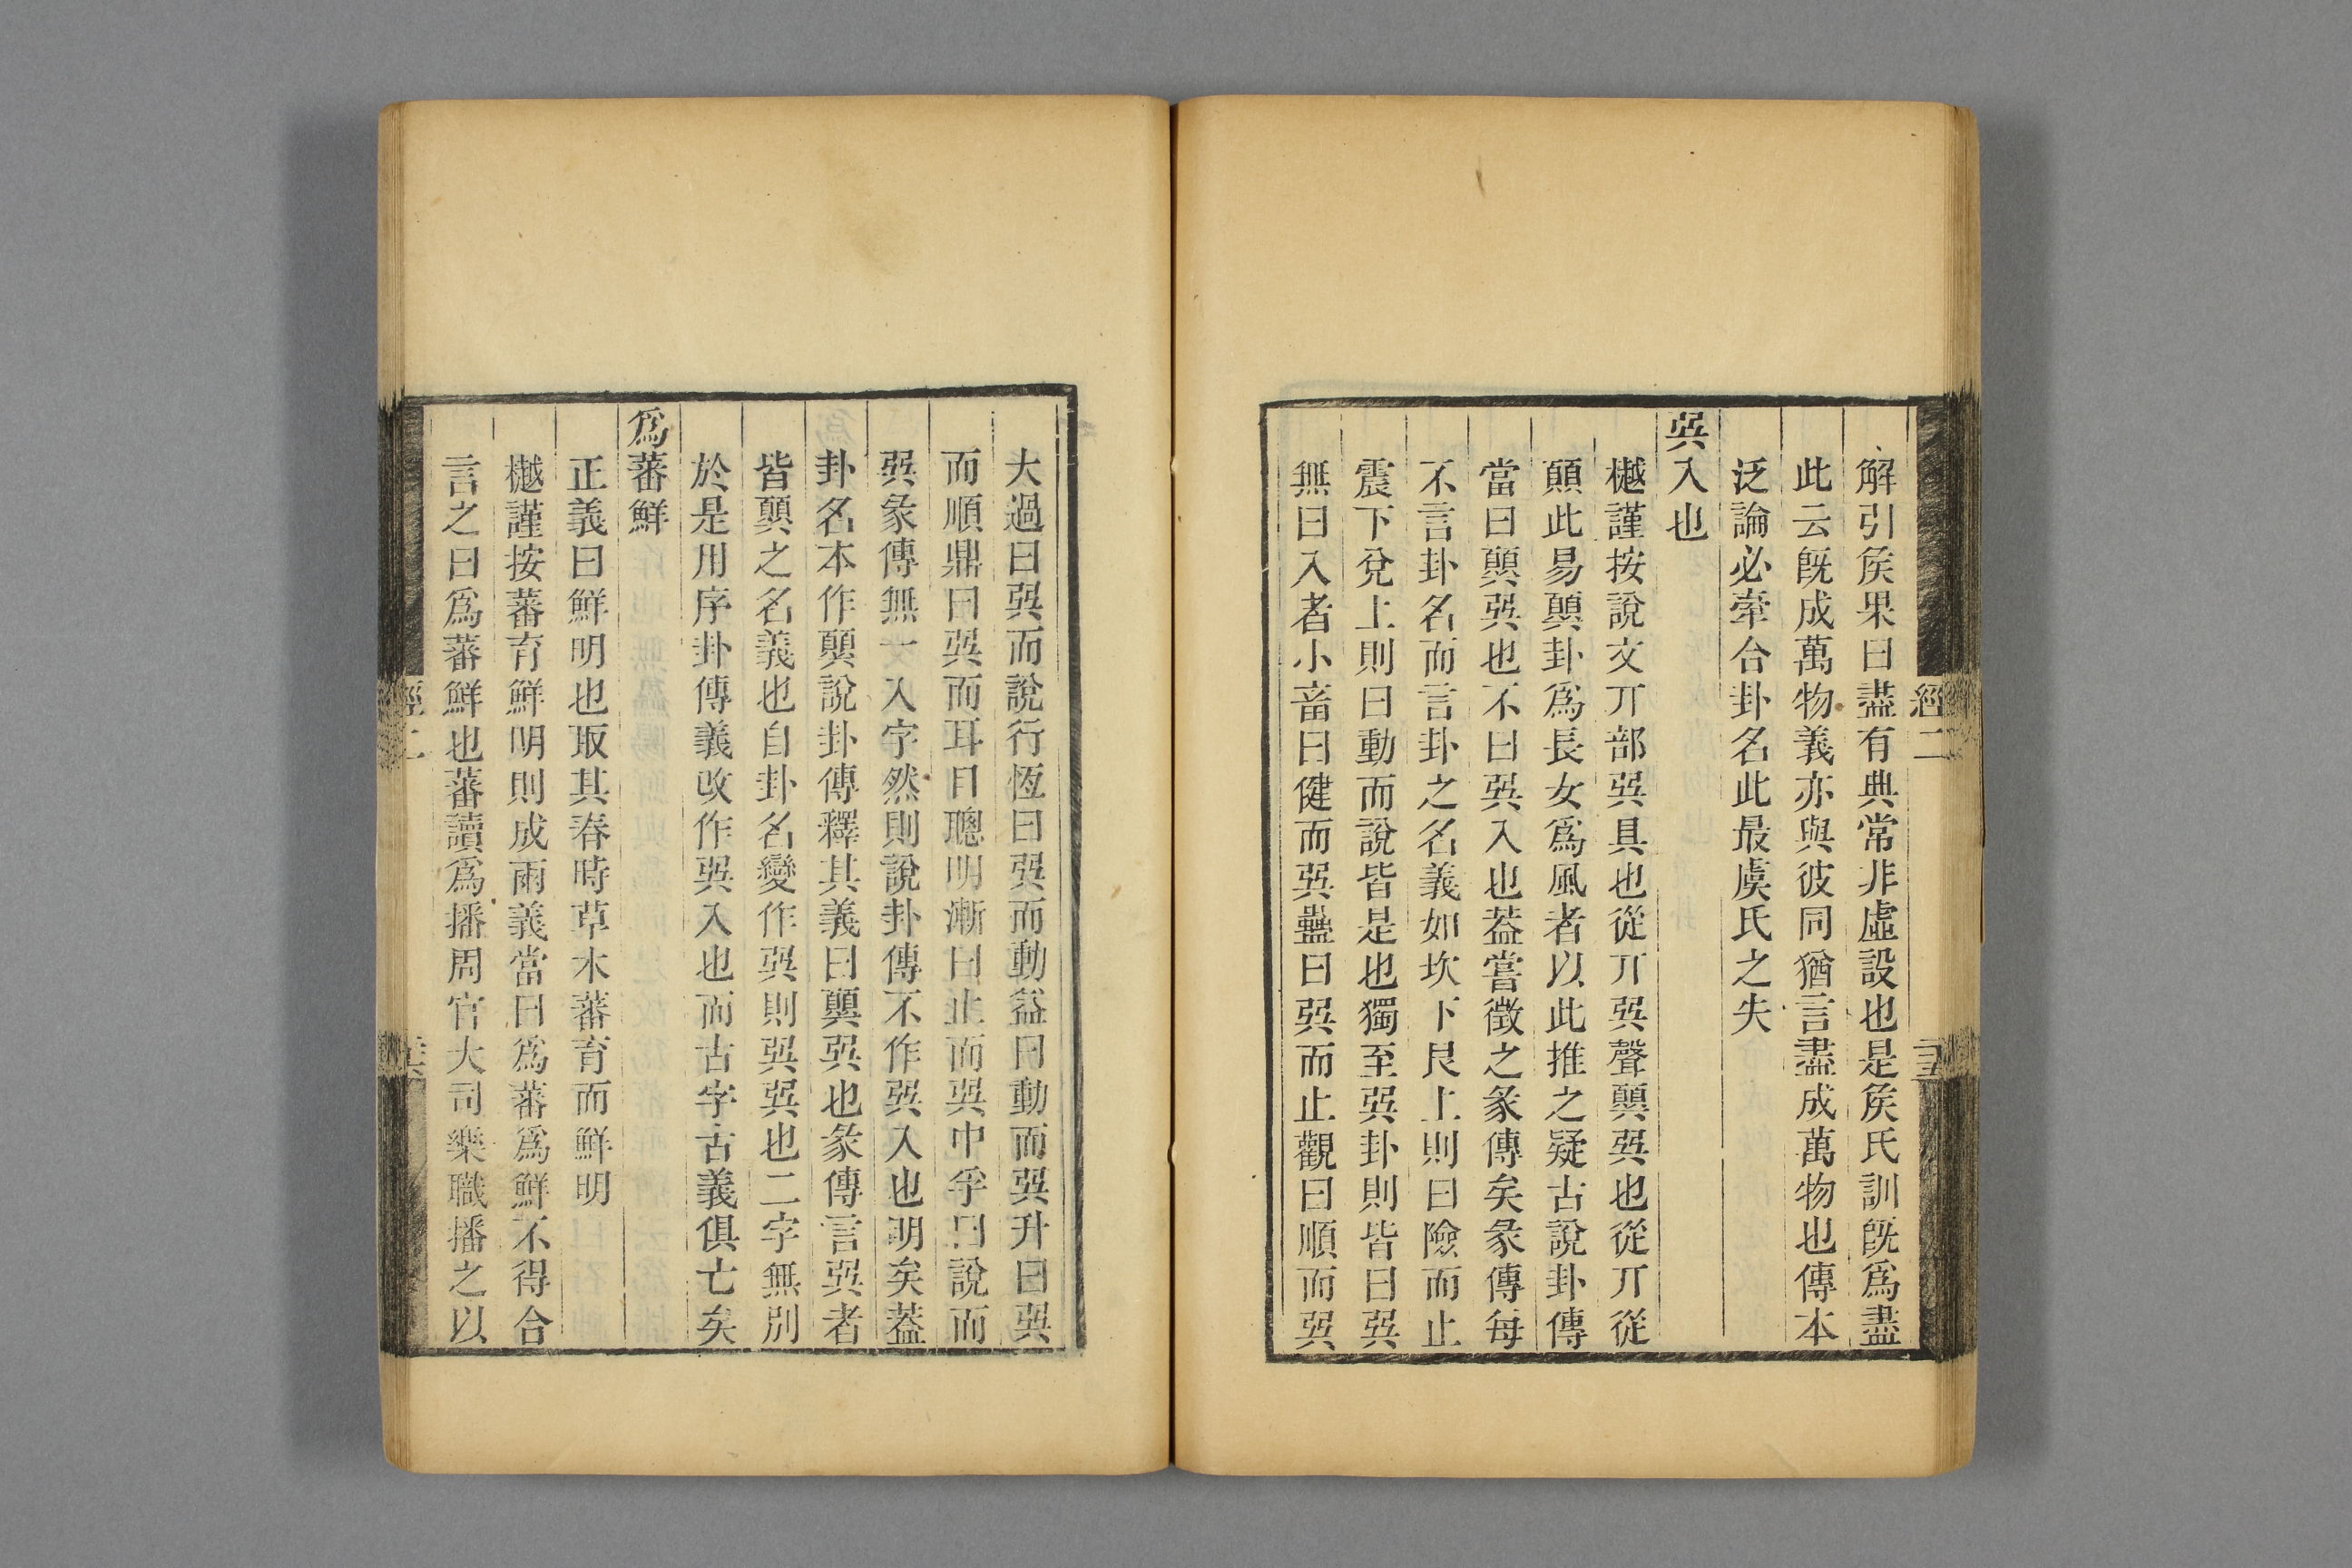 解引矦果曰盡有典常非虛設也是矦氏訓旣爲盡
此云旣成萬物義亦與彼同猶言盡成萬物也傳本
泛論必牽合卦名此最虞氏之失
巽入也
樾謹按說文丌部巽具也從丌㔾聲顨巽也從丌從
顛此易顨卦爲長女爲風者以此推之疑古說卦傳
當曰顨巽也不曰巽入也葢嘗徵之彖傳矣彖傳每
不言卦名而言卦之名義如坎下艮上則曰險而止
震下兌上則曰動而說皆是也獨至巽卦則皆曰巽
無曰入者小畜曰健而巽蠱曰巽而止觀曰順而巽
經二
大過曰巽而說行恆曰巽而動益曰動而巽升曰巽
而順鼎曰巽而耳目聰明漸曰止而巽中孚曰說而
巽彖傳無一入字然則說卦傳不作巽入也明矣葢
卦名本作顨說卦傳釋其義曰顨巽也彖傳言巽者
皆顨之名義也自卦名變作巽則巽巽也二字無別
於是用序卦傳義改作巽入也而古字古義俱亡矣
爲蕃鮮
正義曰鮮明也取其春時草木蕃育而鮮明
樾謹按蕃育鮮明則成兩義當曰爲蕃爲鮮不得合
言之曰爲蕃鮮也蕃讀爲播周官大司樂職播之以
經二